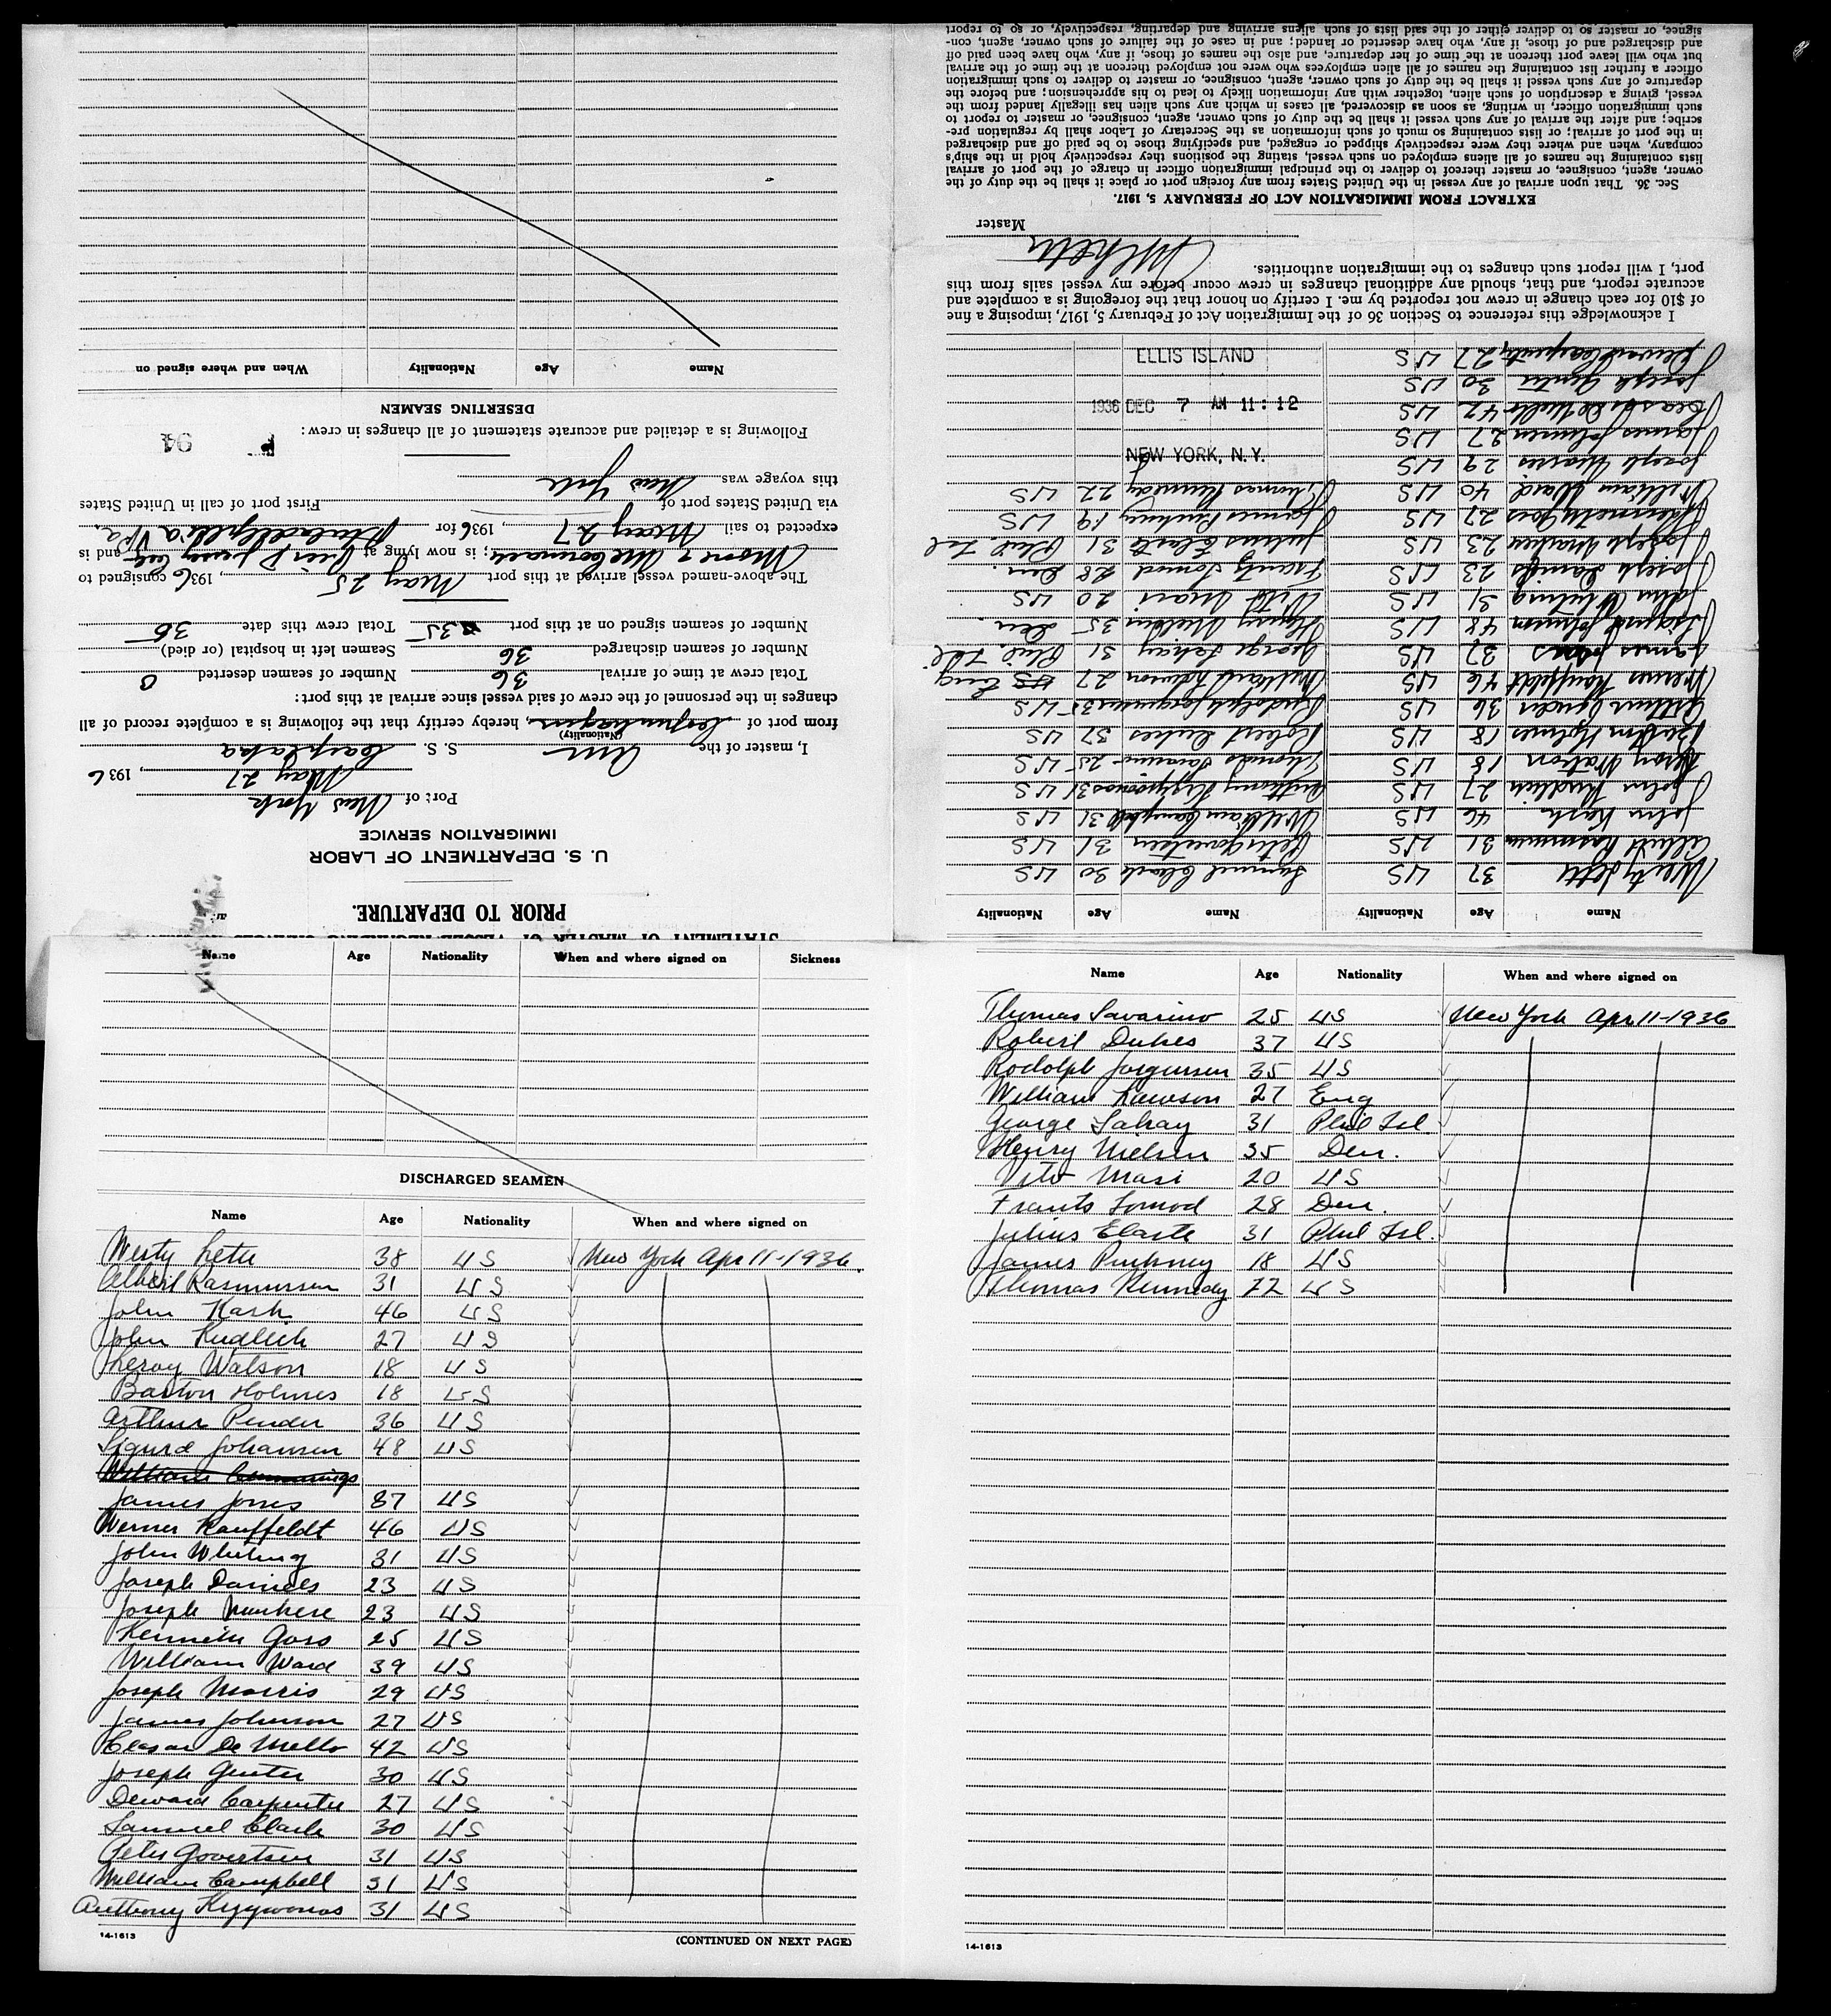 STATEMENT OF MASTER OF VESSEL REGARDING CHANGES
PRIOR TO DEPARTURE.
U. S. DEPARTMENT OF LABOR
IMMIGRATION SERVICE
Port of New York
May 27, 1936
I, master of the Am S. S. Capulapa
(Nationality)
from port of Copenhagen, hereby certify that the following is a complete record of all
changes in the personnel of the crew of said vessel since arrival at this port:
Total crew at time of arrival 36 Number of seamen deserted 0
Number of seamen discharged 36 Seamen left in hospital (or died)
Number of seamen signed on at this port 35 Total crew this date 36
The above-named vessel arrived at this port May 25, 1936 consigned to
Moore & McCormack; is now lying at Pier D Jersey City and is
expected to sail May 27, 1936 for Philadelphia Pa.
via United States port of First port of call in United States
this voyage was New York
Following is a detailed and accurate statement of all changes in crew:
P 94
DESERTING SEAMEN
Name Age Nationality When and where signed on
Name Age Nationality When and where signed on Sickness
DISCHARGED SEAMEN
Name Age Nationality When and where signed on
Westy Leth 38 US New York Apr 11-1936.
Albert Rasmussen 31 US
John Kash 46 US
John Kudlich 27 US
Leroy Watson 18 US
Barton Holmes 18 US
Arthur Pender 36 US
Sigurd Johansen 48 US
William Cummings
James Jones 37 US
Werner Kauffeldt 46 US
John Whiting 31 US
Joseph Daniels 23 US
Joseph 23 US
Kenneth Goss 25 US
William Ward 39 US
Joseph Morris 29 US
James Johnson 27 US
Ceasar De Mello 42 US
Joseph Genter 30 US
Deward Carpenter 27 US
Samuel Clark 30 US
Peter Govertsen 31 US
William Campbell 31 US
Anthony 31 US
14-1613
(CONTINUED ON NEXT PAGE)
Name Age Nationality When and where signed on
Thomas Savarino 25 US New York Apr 11-1936
Robert Dukes 37 US
Rodolph Jorgensen 35 US
William Lawson 27 Eng
George Lahay 31 Phil Isl.
Henry Nielsen 35 Den.
Vito Masi 20 US
Frants Lomod 28 Den.
Julius Elarte 31 Phil Isl.
James Pinkney 18 US
Thomas Kennedy 22 US
14-1613
Name Age Nationality Name Age Nationality
Westy Leth 37 US Samuel Clark 30 US
Albert Rasmussen 31 US Peter Govertsen 31 US
John Kash 46 US William Campbell 31 US
John Kudlich 27 US Anthony 31 US
Leroy Watson 18 US Thomas Savarino 25 US
Barton Holmes 18 US Robert Dukes 37 US
Arthur Pender 36 US Rudolph Jorgensen 35 US
Werner Kauffeldt 46 US William Lawson 27 US Eng
James Jones 37 US George Lahay 31 Phil. Isl.
Sigurd Johansen 48 US Henry Nielsen 35 Den.
John Whiting 31 US Vito Masi 20 US
Joseph Daniels 23 US Frantz Lomod 28 Den.
Joseph 23 US Julius Elarte 31 Phil. Isl
Kenneth Goss 27 US James Pinkney 19 US
William Ward 40 US Thomas Kennedy 22 US
Joseph Morris 29 US
James Johnson 27 US
Ceasar De Mello 42 US
Joseph Genter 30 US
Deward Carpenter 27 US
NEW YORK, N.Y.
1936 DEC 7 AM 11:12
ELLIS ISLAND
I acknowledge this reference to Section 36 of the Immigration Act of February 5, 1917, imposing a fine
of $10 for each change in crew not reported by me. I certify on honor that the foregoing is a complete and
accurate report, and that, should any additional changes in crew occur before my vessel sails from this
port, I will report such changes to the immigration authorities.
Master
EXTRACT FROM IMMIGRATION ACT OF FEBRUARY 5, 1917.
Sec. 36. That upon arrival of any vessel in the United States from any foreign port or place it shall be the duty of the
owner, agent, consignee, or master thereof to deliver to the principal immigration officer in charge of the port of arrival
lists containing the names of all aliens employed on such vessel, stating the positions they respectively hold in the ship's
company, when and where they were respectively shipped or engaged, and specifying those to be paid off and discharged
in the port of arrival; or lists containing so much of such information as the Secretary of Labor shall by regulation pre-
scribe; and after the arrival of any such vessel it shall be the duty of such owner, agent, consignee, or master to report to
such immigration officer, in writing, as soon as discovered, all cases in which any such alien has illegally landed from the
vessel, giving a description of such alien, together with any information likely to lead to his apprehension; and before the
departure of any such vessel it shall be the duty of such owner, agent, consignee, or master to deliver to such immigration
officer a further list containing the names of all alien employees who were not employed thereon at the time of the arrival
but who will leave port thereon at the time of her departure, and also the names of those, if any, who have been paid off
and discharged and of those, if any, who have deserted or landed; and in case of the failure of such owner, agent, con-
signee, or master so to deliver either of the said lists of such aliens arriving and departing, respectively, or so to report